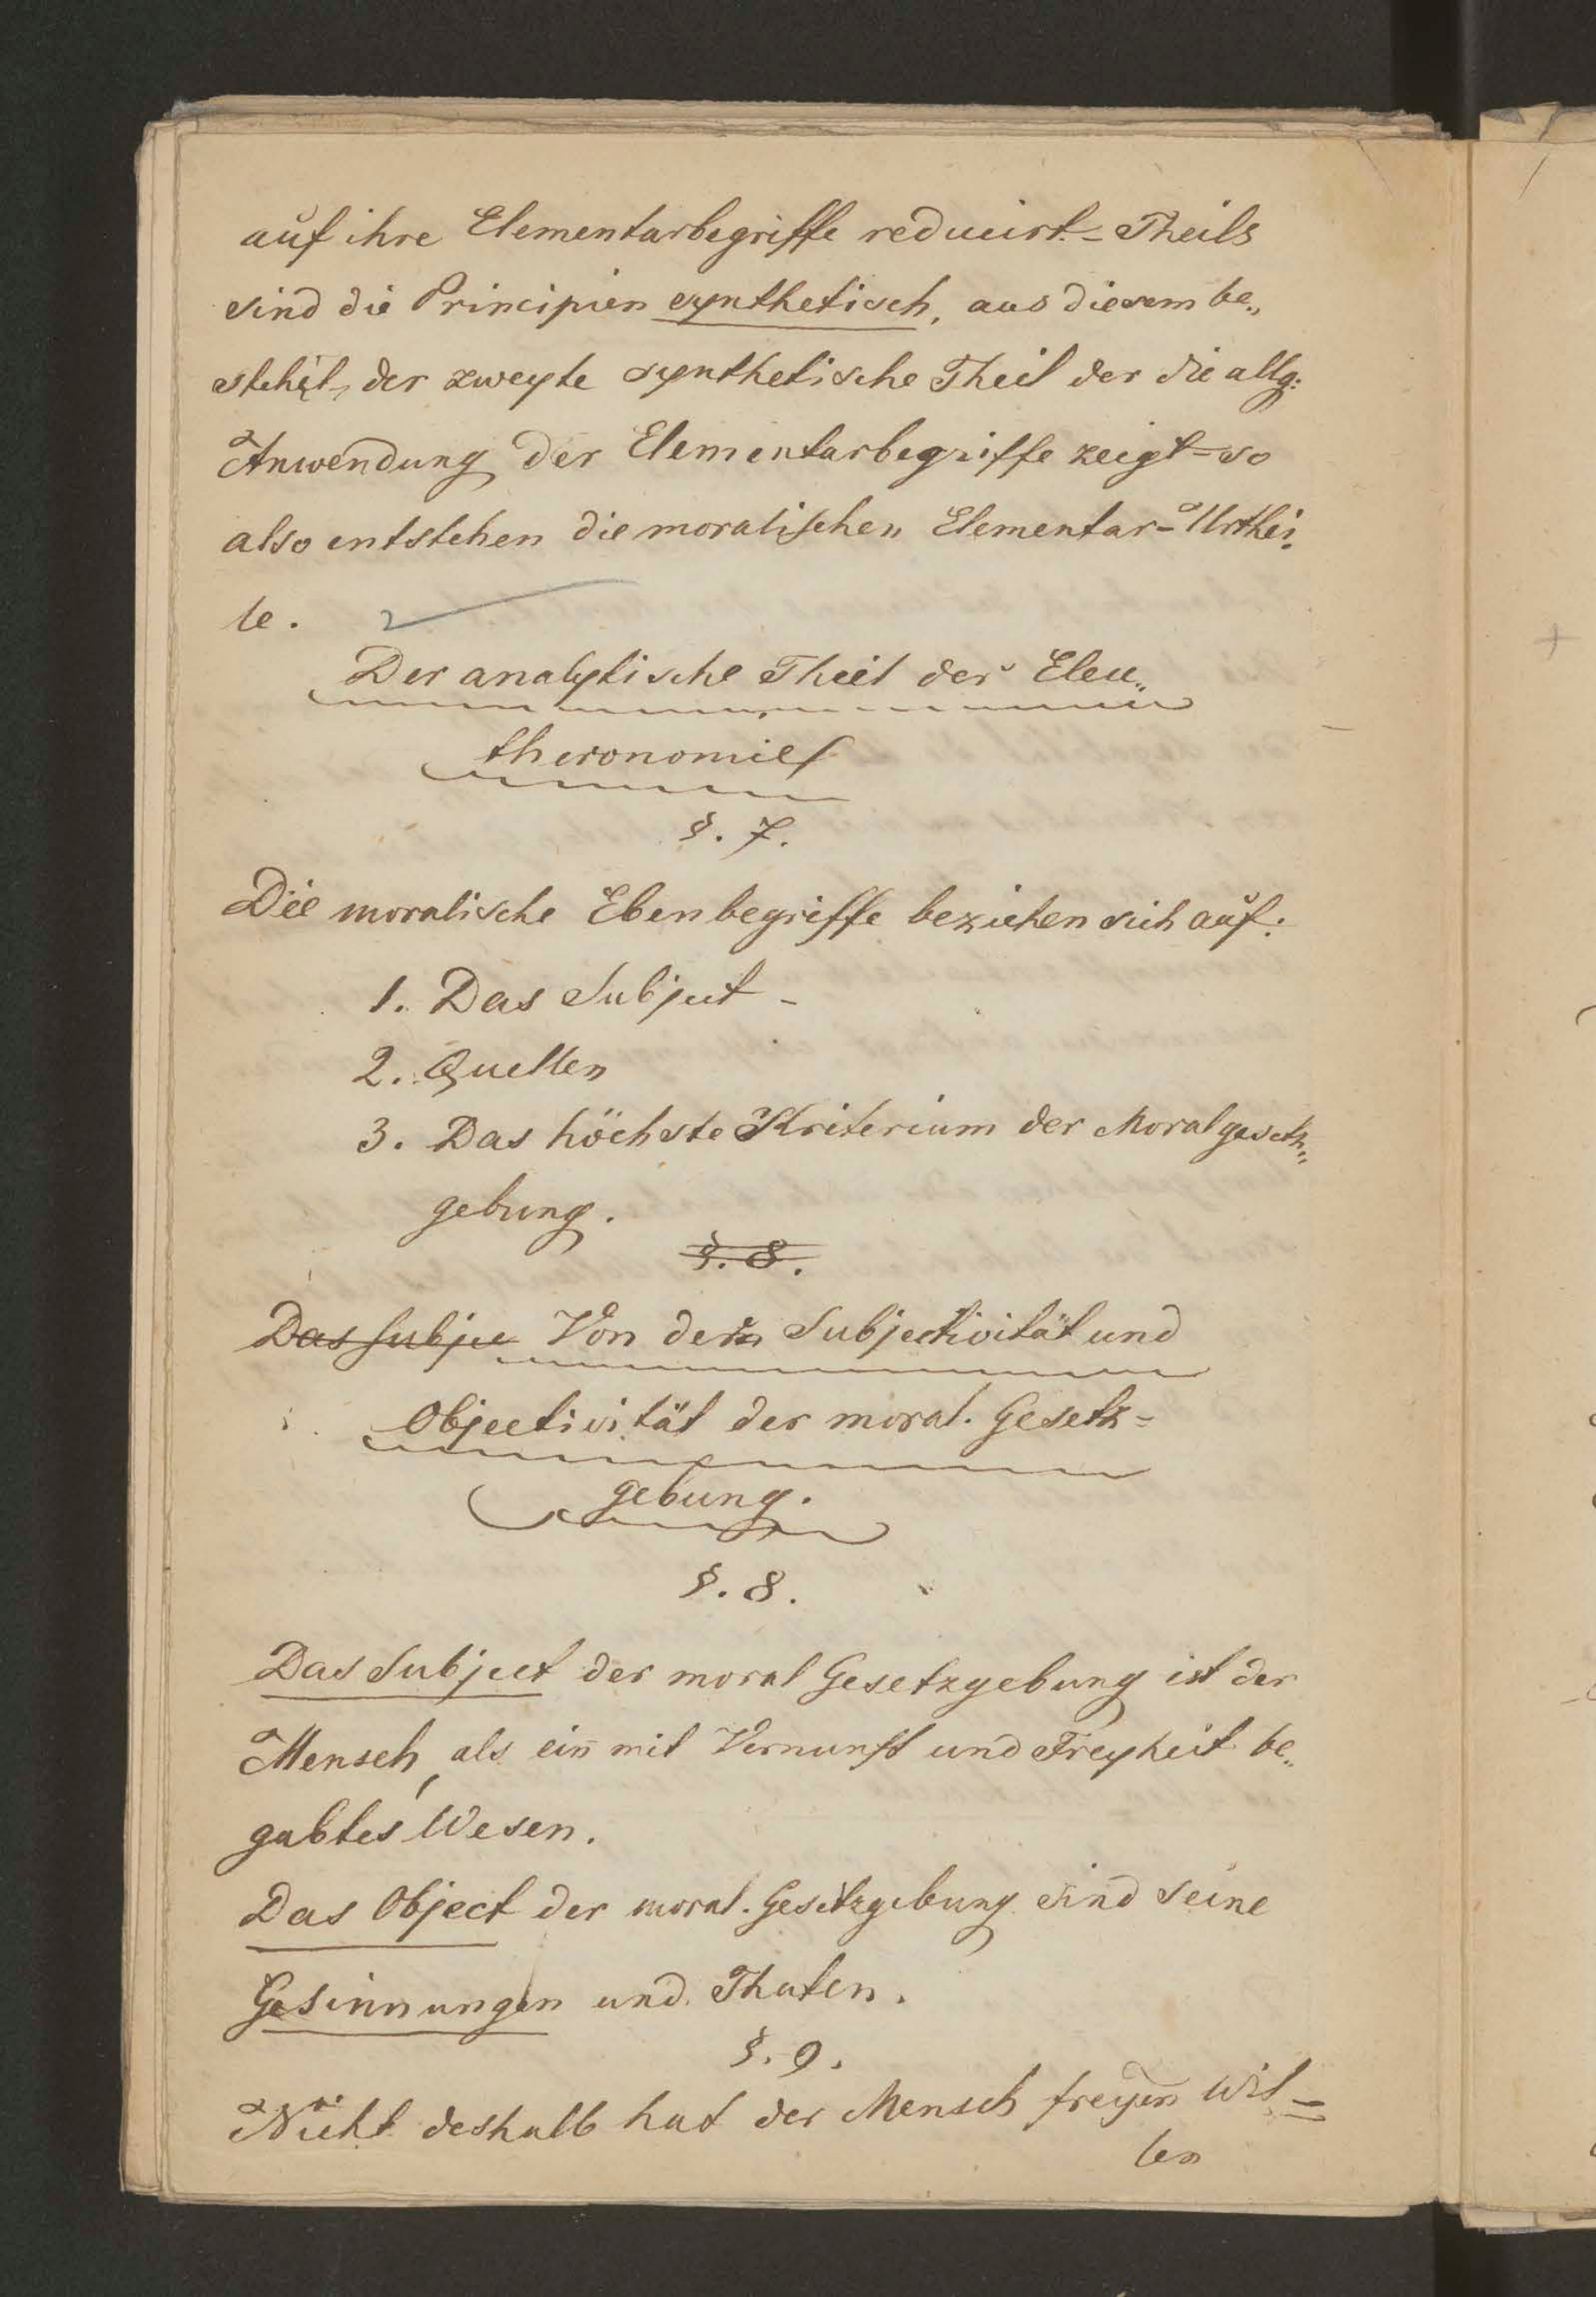 auf ihre Elementarbegriffe reducirt.= Theils
sind die Principien synthetisch, aus diesem be„
steht, der zweyte synthetische Theil der die allg:
Anwendung der Elementarbegriffe zeigt = so
also entstehen die moralischen Elementar=Urthei„
le.
Der analytische Theil der Eleu„
theronomie
§. 7.
Die moralische Ebenbegriffe beziehen sich auf:
1. Das Subject -
2. Quellen
3. Das höchste Kriterium der Moralgesetz„
gebung.
§. 8.
Das Subje Von der Subjectivität und
Objectivität der moral. Gesetz=
gebung.
§. 8.
Das Subject der moral Gesetzgebung ist der
Mensch, als ein mit Vernunft und Freyheit be„
gabtes Wesen.
Das Object der moral. Gesetzgebung sind seine
Gesinnungen und Thaten.
§. 9.
Nicht deshalb hat der Mensch freyen Wil=
len